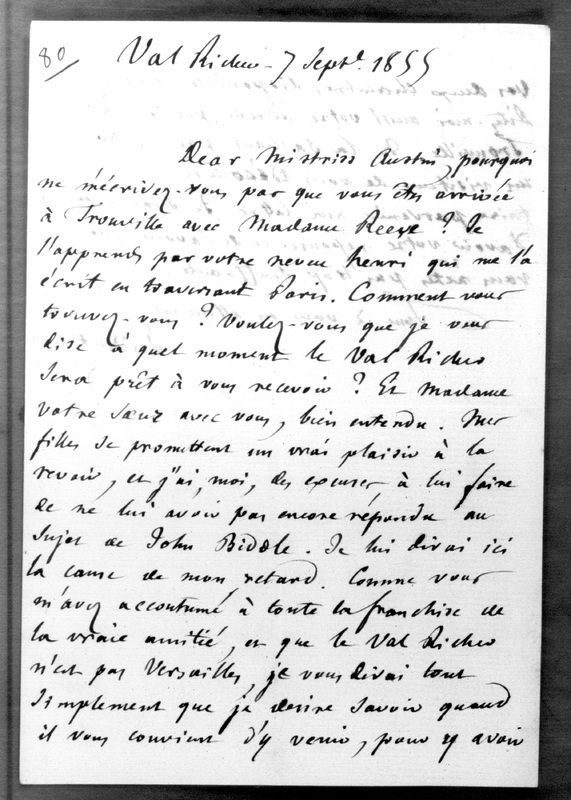 80/
Val Richer - 7 Septre. 1855
Dear Mistriss Austin, pourquoi
ne m'écrivez-vous pas que vous êtes arrivée
à Trouville avec Madame Reeve ? Je
l'apprends par votre neveu henri qui me l'a
écrit en traversant Paris. Comment vous
trouvez-vous ? Voulez-vous que je vous
dise à quel moment le Val Richer
sera prêt à vous recevoir ? Et Madame
votre sœur avec vous, bien entendu. Mes
filles se promettent un vrai plaisir à la
revoir, et j'ai, moi, des excuses à lui faire
de ne lui avoir pas encore répondu au
sujet de John Biddle. Je lui dirai ici
la cause de mon retard. Comme vous
m'avez accoutumé à toute la franchise de
la vraie amitié, et que le Val Richer
n'est pas Versailles, je vous dirai tout
simplement que je desire savoir quand
il vous convient d'y venir, pour y avoir